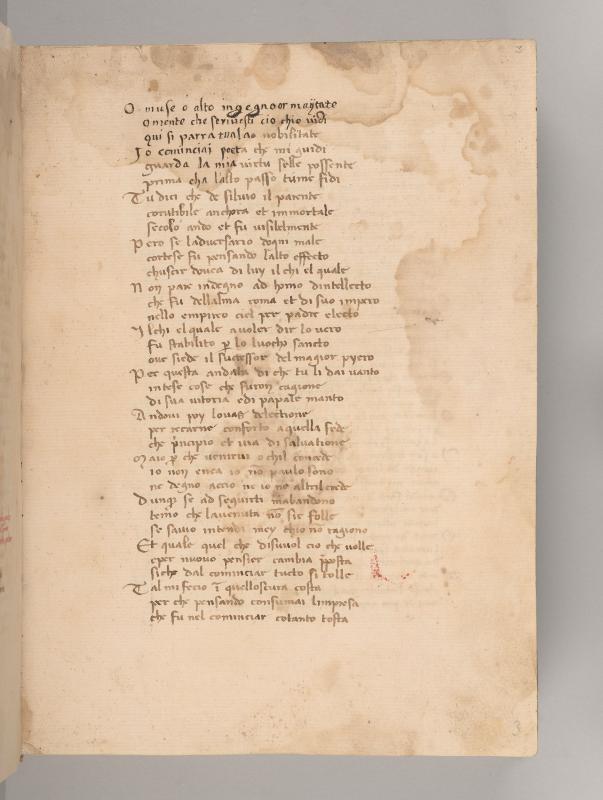 3
O muse o alto ingegno or maytate
o mente che scrivesti cio chio vidi
qui si parra tua la nobilitate
Io cominciai poeta che mi guidi
guarda la mia virtu selle possente
prima cha lalto passo tu me fidi
Tu dici che de silvio il parente
corutibile anchora et immortale
secolo ando et fu visibilmente
Pero se ladversario dogni male
cortese fu pensando lalto effecto
chuscir dovea di luy il chi el quale
Non pare indegno ad homo dintellecto
che fu dellalma roma et di suo impero
nello empireo ciel per padre electo
Il chi el quale a voler dir lo vero
fu stabilito p lo luocho sancto
ove siede il successor del magior pyero
Per questa andata di che tu li dai vanto
intese cose che furon cagione
di sua vitoria e di papale manto
Andovi poy lo vas delectione
per recarne conforto a quella fede
che principio et via di salvatione
Ma io p che venirvi o chil concede
io non enea io no paulo sono
ne degno accio ne io ne altri l crede
Dunq se ad seguirti mabandono
temo che la venuta no sie folle
se savio intendi mey chio no ragiono
Et quale quel che disvuol cio che volle
e per nuovo pensier cambia pposta
si che dal cominciar tucto si tolle
Tal mi fecio i quell oscura costa
per che pensando consumai limpresa
che fu nel cominciar cotanto tosta
3